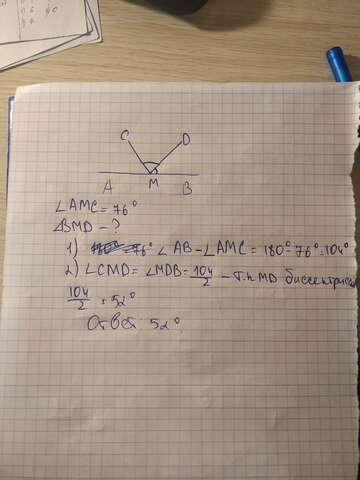 C D
A M B
∠AMC = 76°
∠BMD - ?
1) ∠AB - ∠AMC = 180° - 76° = 104°
2) ∠CMD = ∠MDB = 104/2 - т.к MD биссектриса
104/2 = 52°
Ответ 52°